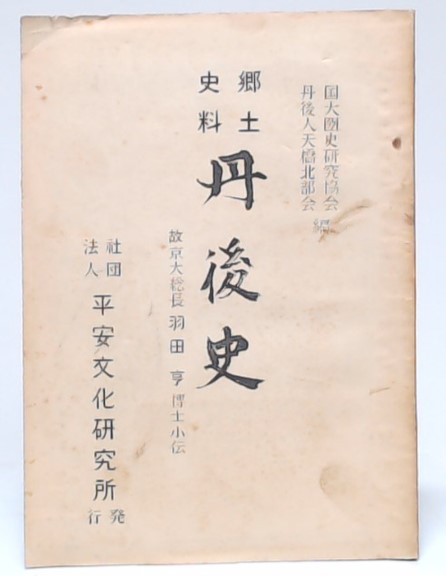 国大國史研究協会
丹後人天橋北部会 編
郷土
史料
丹後史
故京大総長 羽田 亨 博士小伝
社団
法人
平安文化研究所
発行